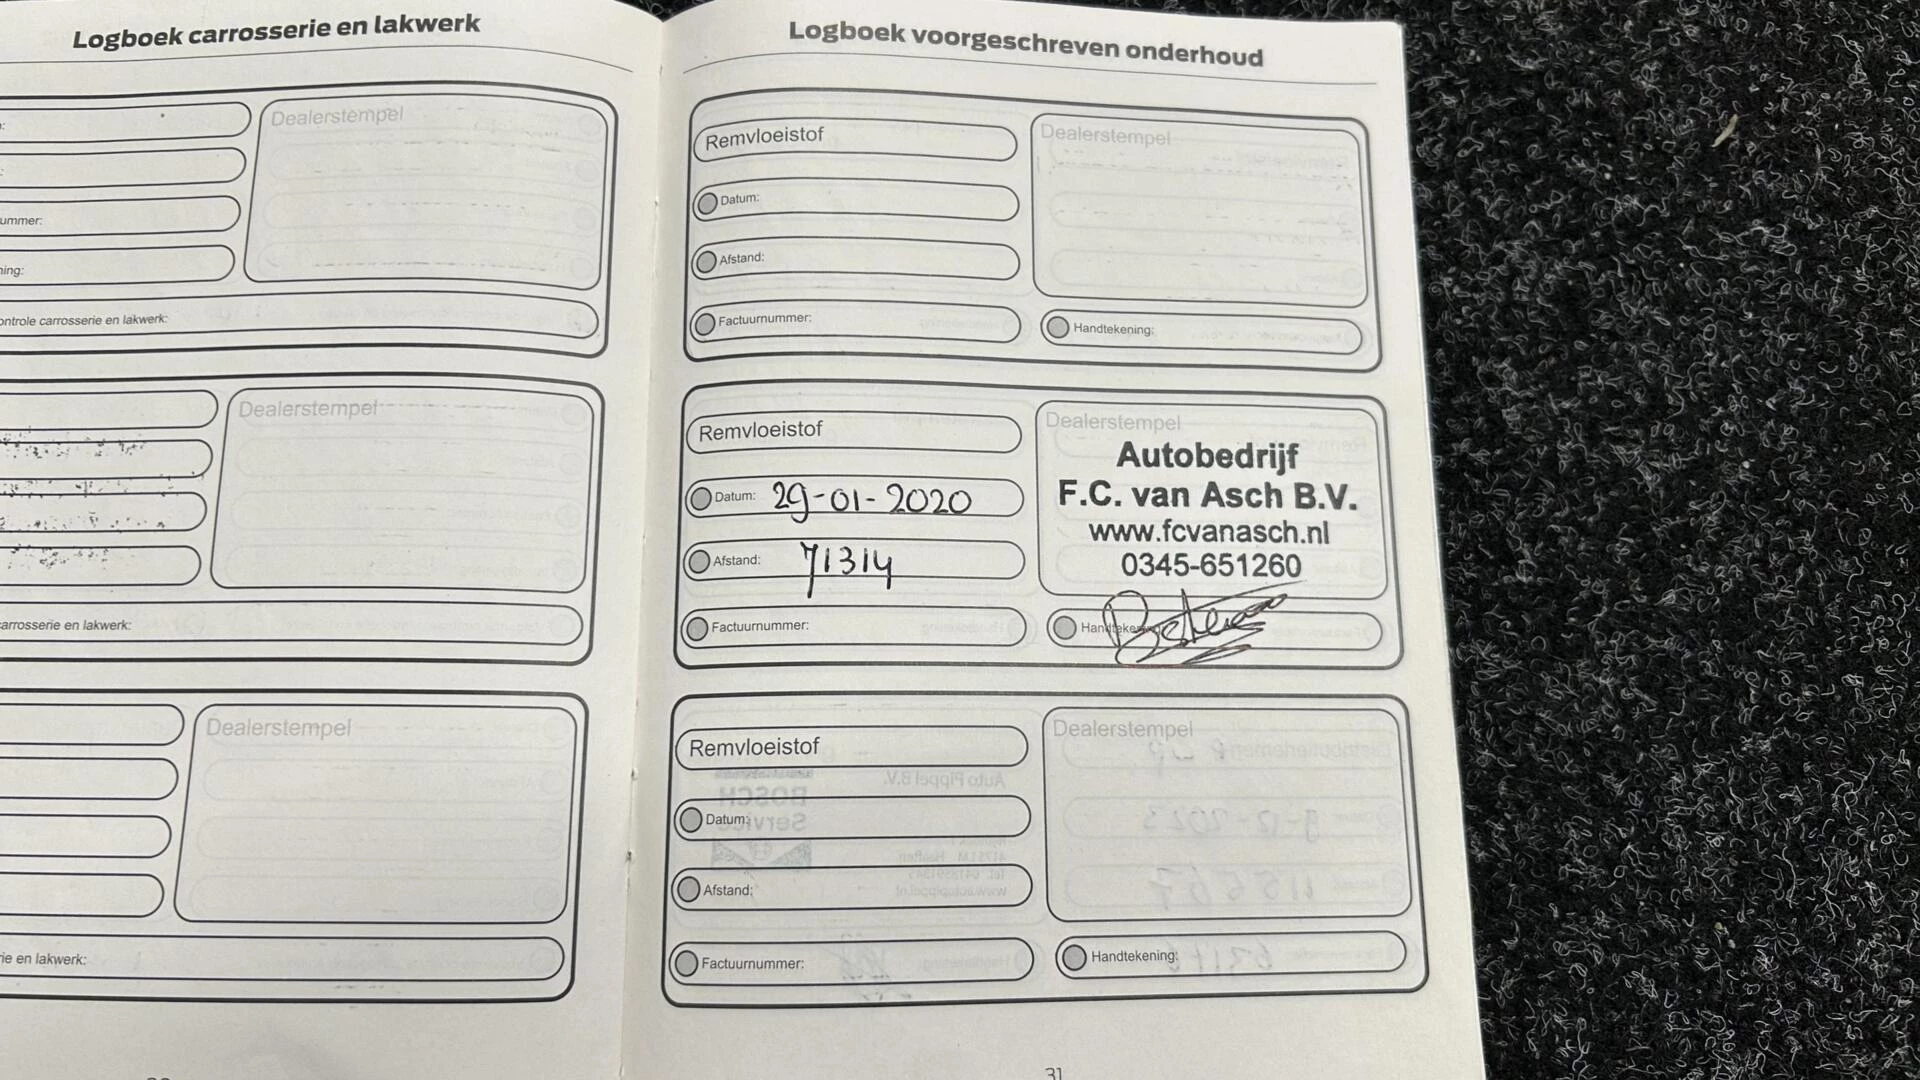 Logboek carrosserie en lakwerk
Dealerstempel
ummer:
ning:
ontrole carrosserie en lakwerk:
Dealerstempel
arrosserie en lakwerk:
Dealerstempel
rie en lakwerk:
Logboek voorgeschreven onderhoud
Remvloeistof
Dealerstempel
Datum:
Afstand:
Factuurnummer:
Handtekening:
Remvloeistof
Dealerstempel
Autobedrijf
F.C. van Asch B.V.
www.fcvanasch.nl
0345-651260
Datum: 29-01-2020
Afstand: 71314
Factuurnummer:
Handtekening:
Remvloeistof
Dealerstempel
Datum:
Afstand:
Factuurnummer:
Handtekening:
31